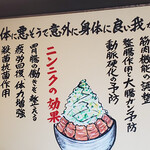 体に悪そうで意外に身体に良い我が
筋肉機能の調整
整腸作用と大腸ガン予防
動脈硬化の予防
ニンニクの効果
胃腸の働きを整える
疲労回復、体力増強
殺菌抗菌作用